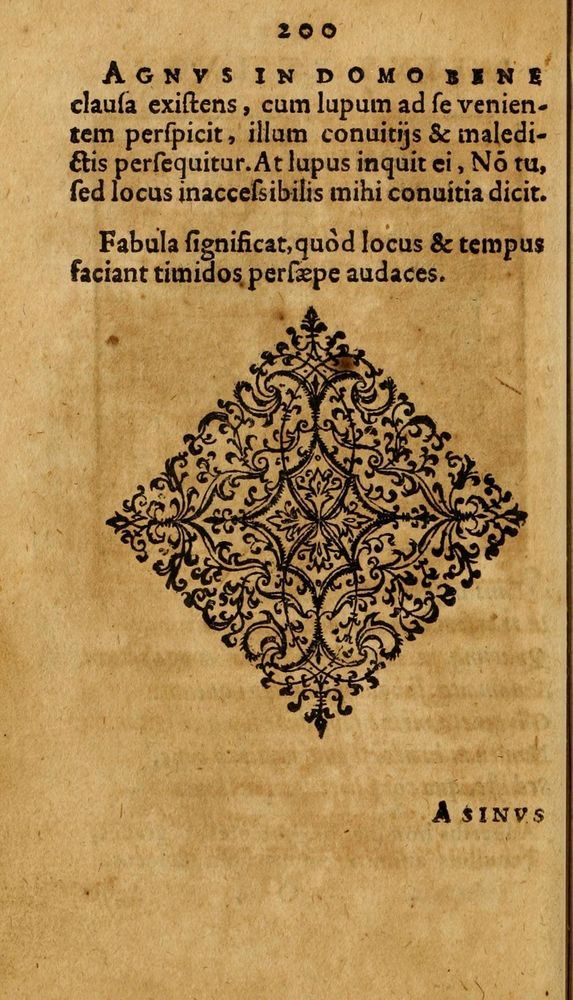 200
AGNVS IN DOMO BENE
clauſa exiſtens, cum lupum ad ſe venien-
tem perſpicit, illum conuitijs & maledi-
ctis perſequitur. At lupus inquit ei, Nō tu,
ſed locus inacceſsibilis mihi conuitia dicit.
Fabula ſignificat, quòd locus & tempus
faciant timidos perſæpe audaces.
ASINVS